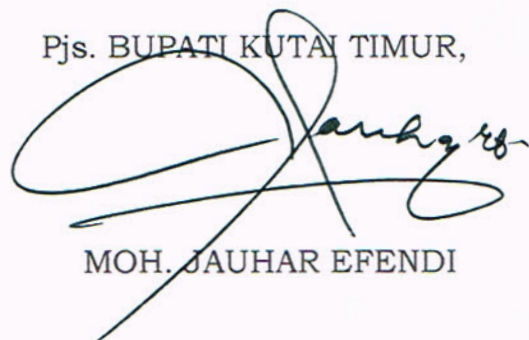 Pjs. BUPATI KUTAI TIMUR,
MOH. JAUHAR EFENDI